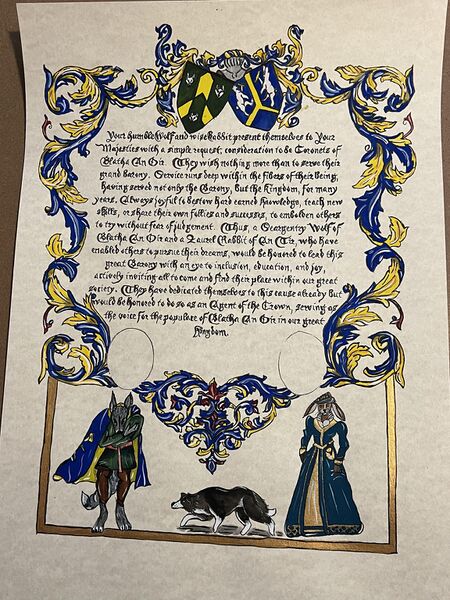 Your humble Wolf and wise Rabbit present themselves to Your
Majesties with a simple request; consideration to be Coronets of
Blatha An Oir. They wish nothing more than to serve their
grand Barony. Service runs deep within the fibers of their being,
having served not only the Barony, but the Kingdom, for many
years. Always joyful to bestow hard earned knowledge, teach new
skills, or share their own follies and successes, to embolden others
to try without fear of judgement. Thus, a Seargentry Wolf of
Blatha An Oir and a Laurel Rabbit of An Tir, who have
enabled others to pursue their dreams, would be honored to lead this
great Barony with an eye to inclusion, education, and joy,
actively inviting all to come and find their place within our great
society. They have dedicated themselves to this cause already but
would be honored to do so as an Agent of the Crown, serving as
the voice for the populace of Blatha An Oir in our great
Kingdom.